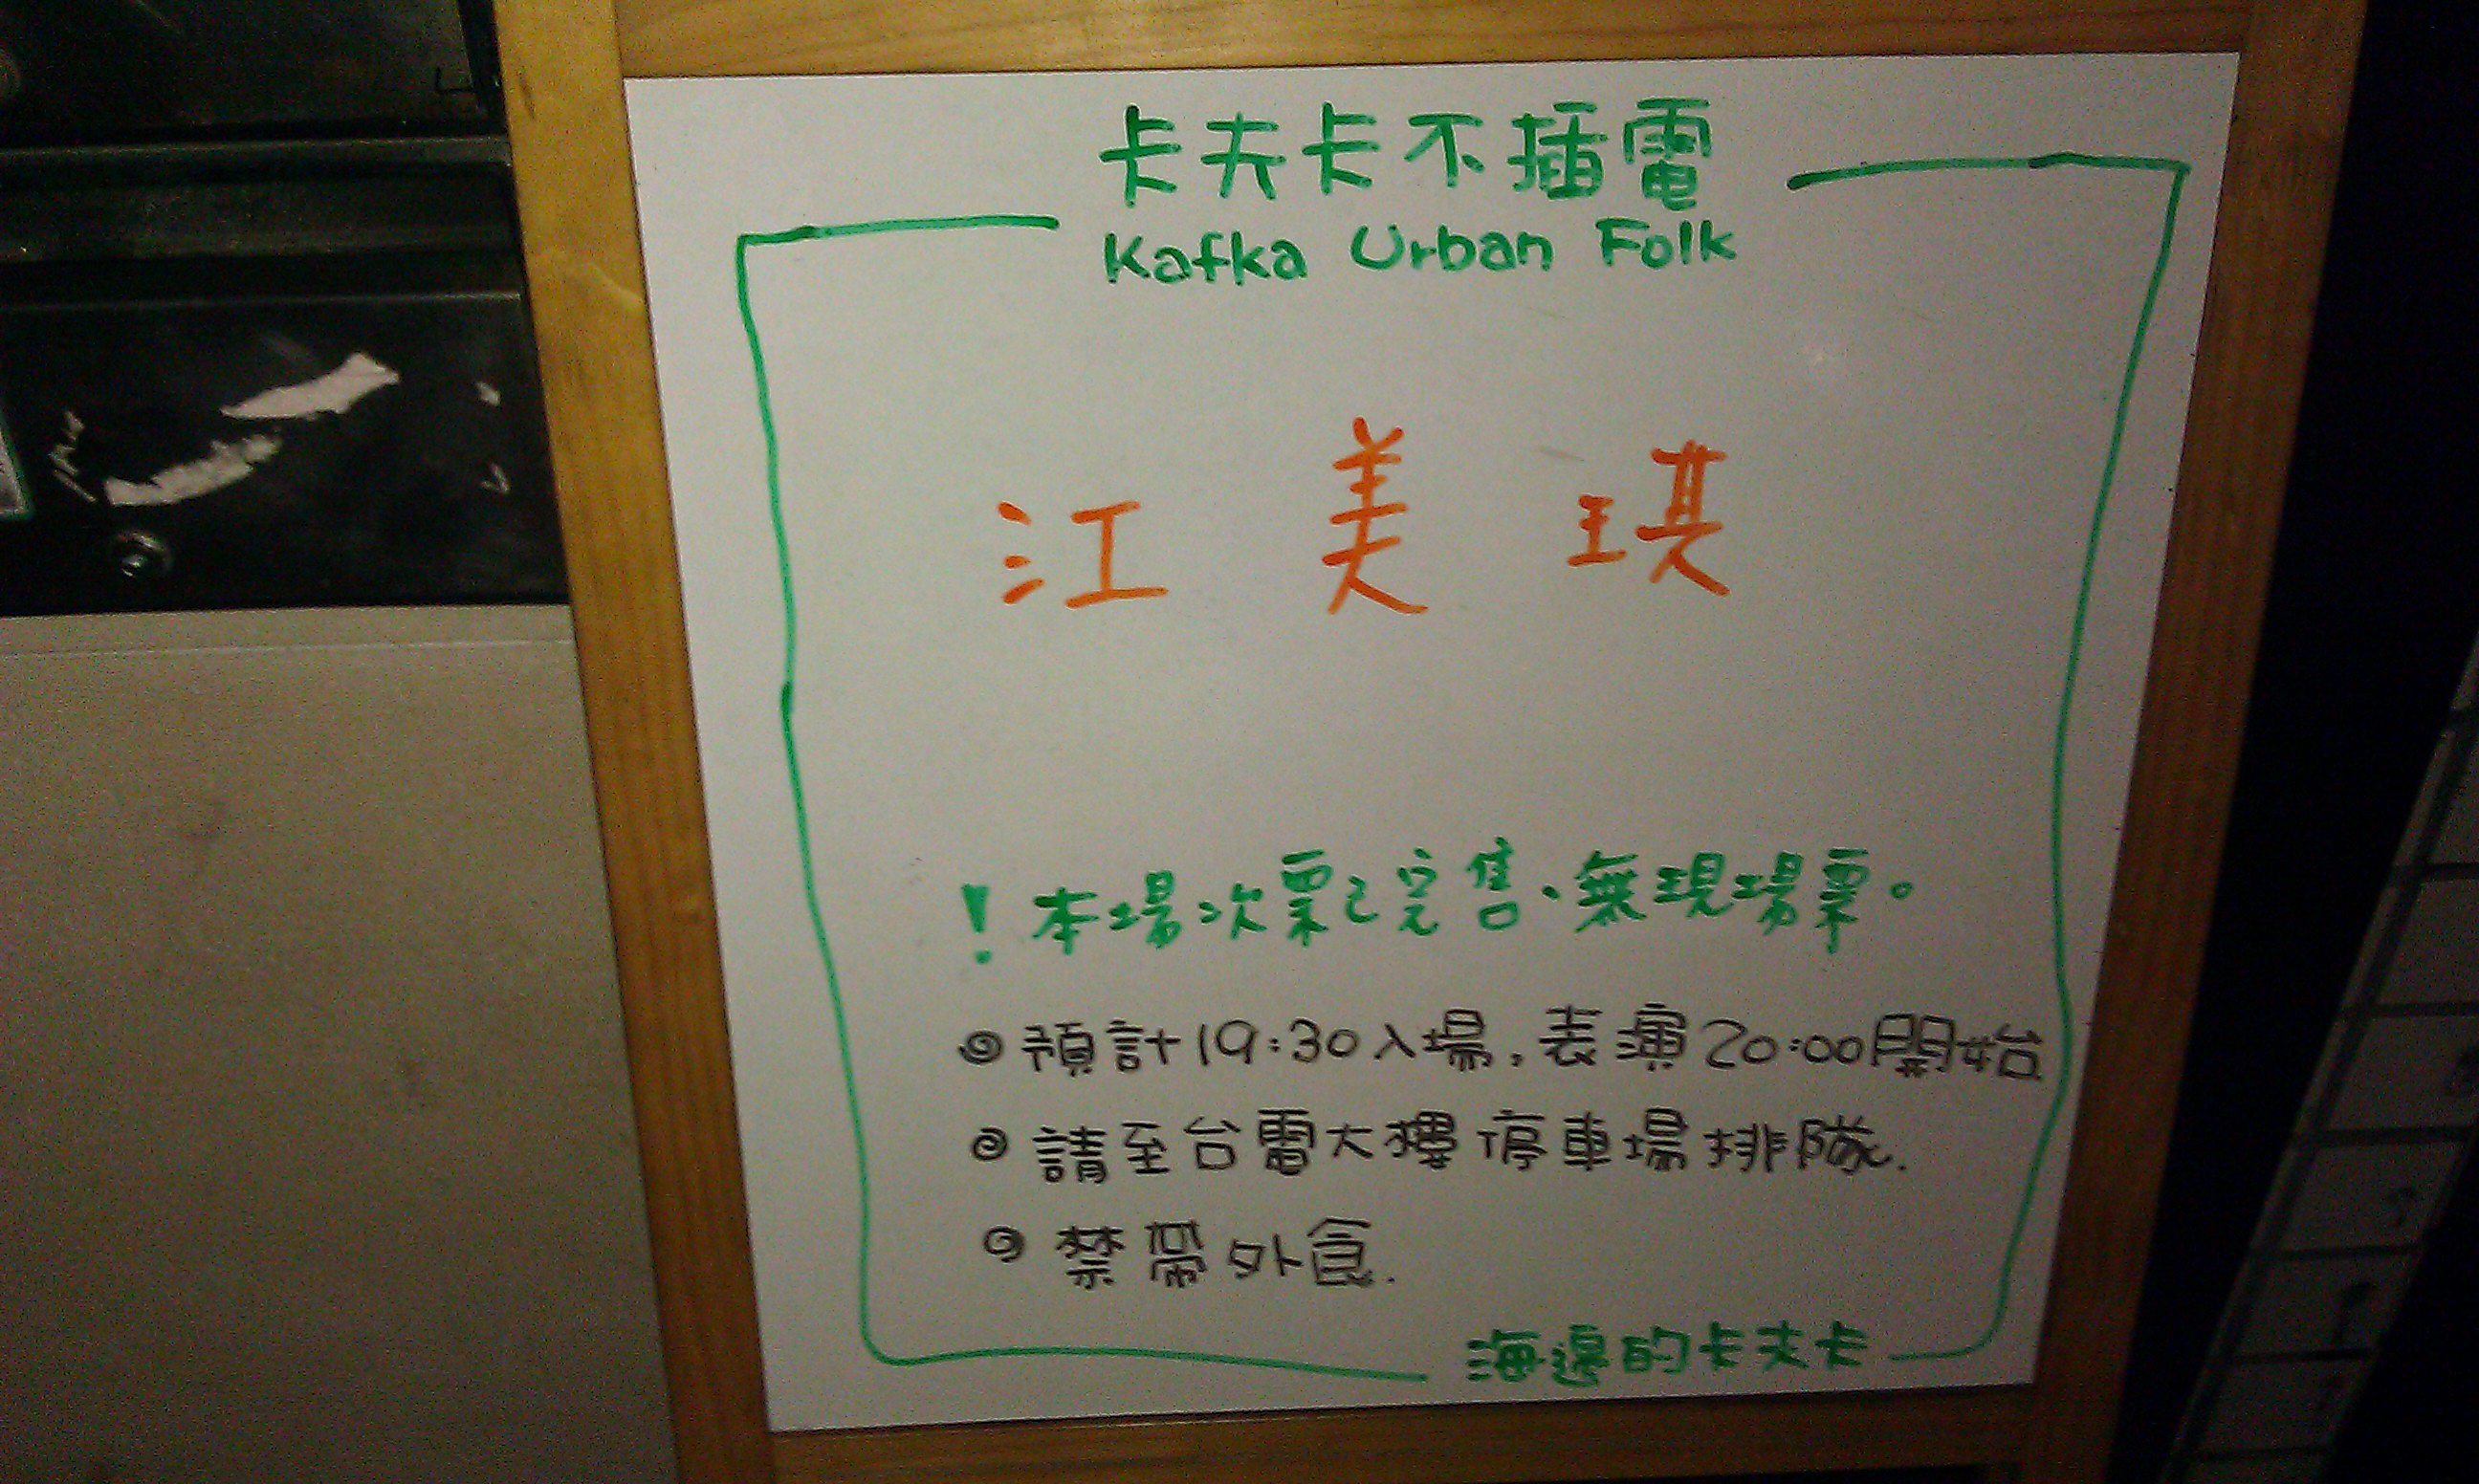 卡夫卡不插電
Kafka Urban Folk
江美琪
！本場次票已完售、無現場票。
預計19:30入場，表演20:00開始
請至台電大樓停車場排隊.
禁帶外食.
海邊的卡夫卡